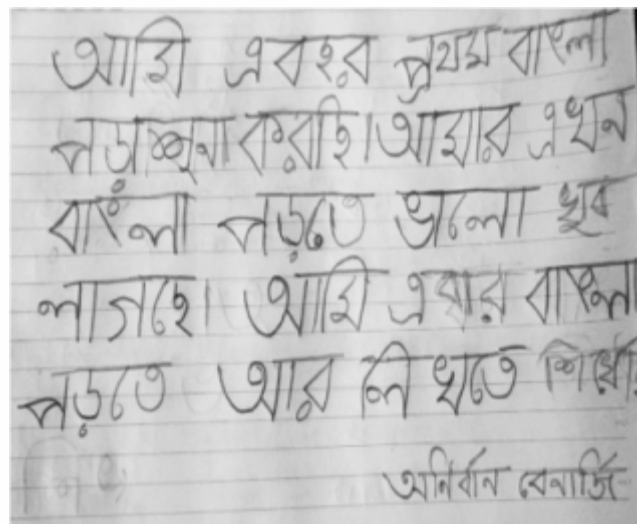 আমি এবছর প্রথম বাংলা
পড়াশুনা করছি। আমার এখন
বাংলা পড়তে ভালো খুব
লাগছে। আমি এবার বাংলা
পড়তে আর লিখতে
অনির্বান বেনার্জি